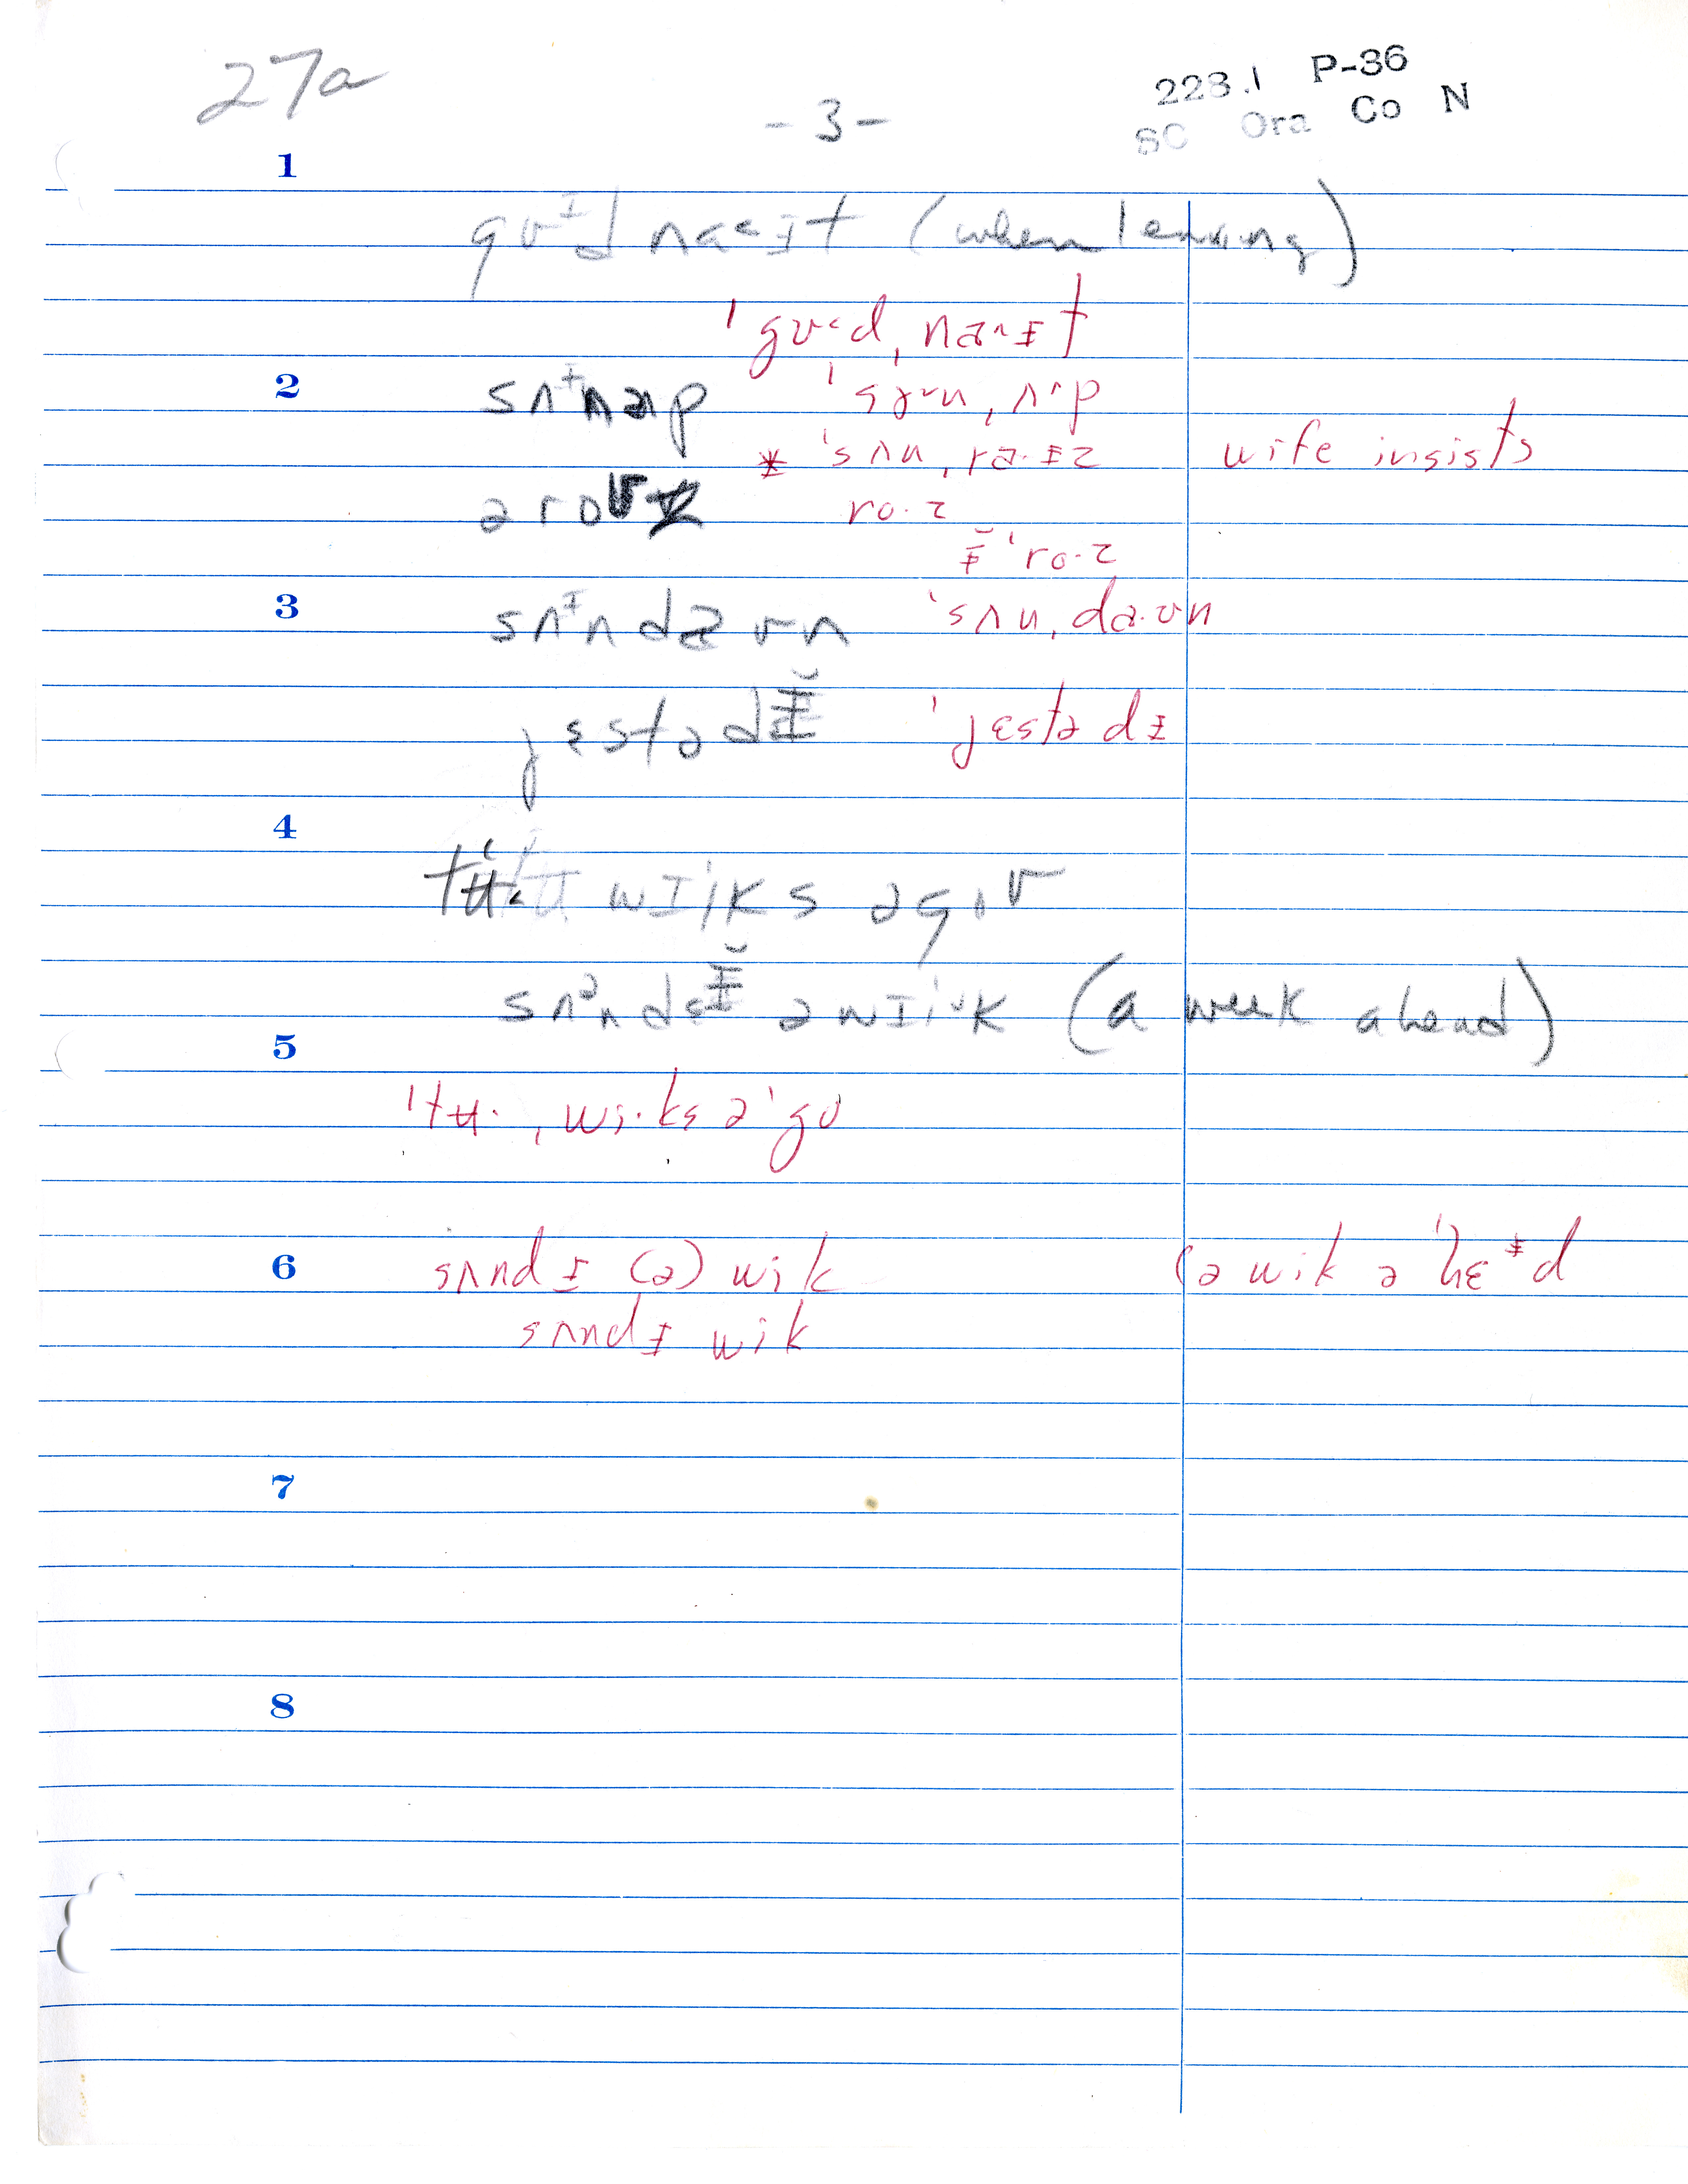 27a
- 3 -
223.1 P-36
SC Ora Co N
1
gʊᶦd naᵋɪt (when leaving)
ˈgʊ˂d ˌnaˑᵻt
2
sʌᶧnʌp ˈsɤ˞n ˌʌ˄p
* ˈsʌn ˌraˑᵻz wife insists
əroʊz roˑz
ᵻ̆ ˈroˑz
3
sʌᶦndaʊn ˈsʌn ˌdaˑʊn
jɛstədᵻ̆ ˈjɛstədᵻ
4
tʉˑ wɪiks əgoʊ
sʌᵊndᵻ̆ əwɪik (a week ahead)
5
ˈtʉˑ ˌwiˑks əˈgo
6
sʌndᵻ (ə) wik (ə wik ə ˈhɛᵻd
sʌndᵻ wik
7
8